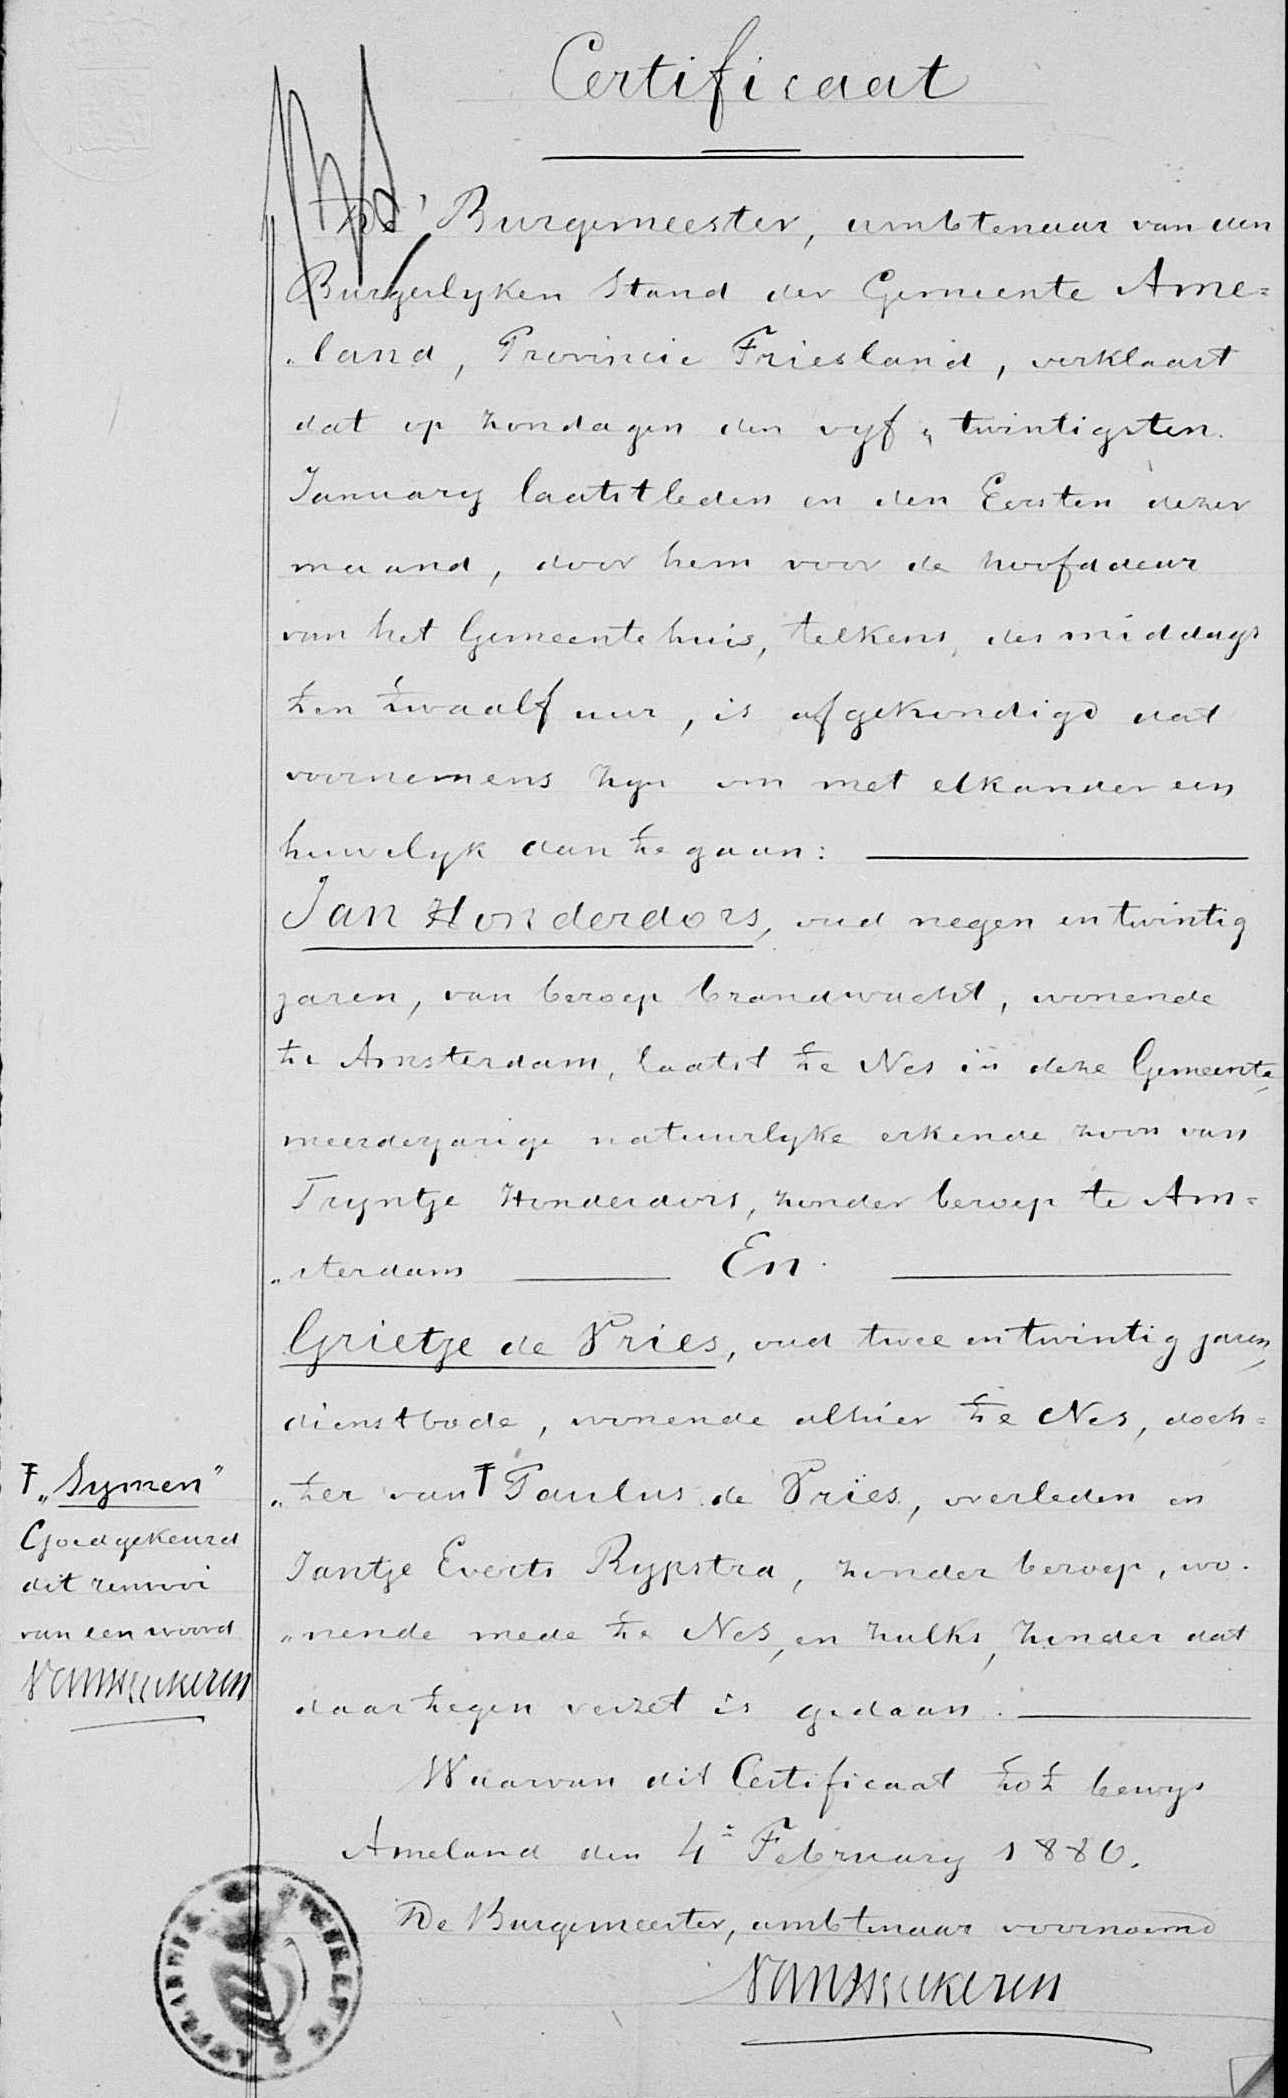 Certificaat
De Burgemeester, ambtenaar van den
Burgerlyken Stand der Gemeente Ame=
"land, Provincie Friesland, verklaart
dat op zondagen den vyf " twintigsten
January laatstleden en den Eersten dezer
maand, door hem voor de hoofddeur
van het Gemeentehuis, telkens, des middags
ten twaalf uur, is afgekondigd dat
voornemens zyn om met elkander een
huwelyk aan te gaan:
Jan Honderdors, oud negen en twintig
jaren, van beroep brandwacht, wonende
te Amsterdam, laatst te Nes in deze Gemeente,
meerderjarige natuurlyke erkende zoon van
Tryntje Honderdors, zonder beroep te Am=
"sterdam En
Grietje de Vries, oud twee en twintig jaren,
dienstbode, wonende alhier te Nes, doch=
"ter van Ŧ Paulus de Vries, overleden en
Jantje Everts Rypstra, zonder beroep, wo-
"nende mede te Nes, en zulks, zonder dat
daartegen verzet is gedaan.
Waarvan dit Certificaat tot bewys
Ameland den 4e February 1880.
De Burgemeester, ambtenaar voornoemd
Ŧ "Symen"
Goedgekeurd
dit renvooi
van een woord